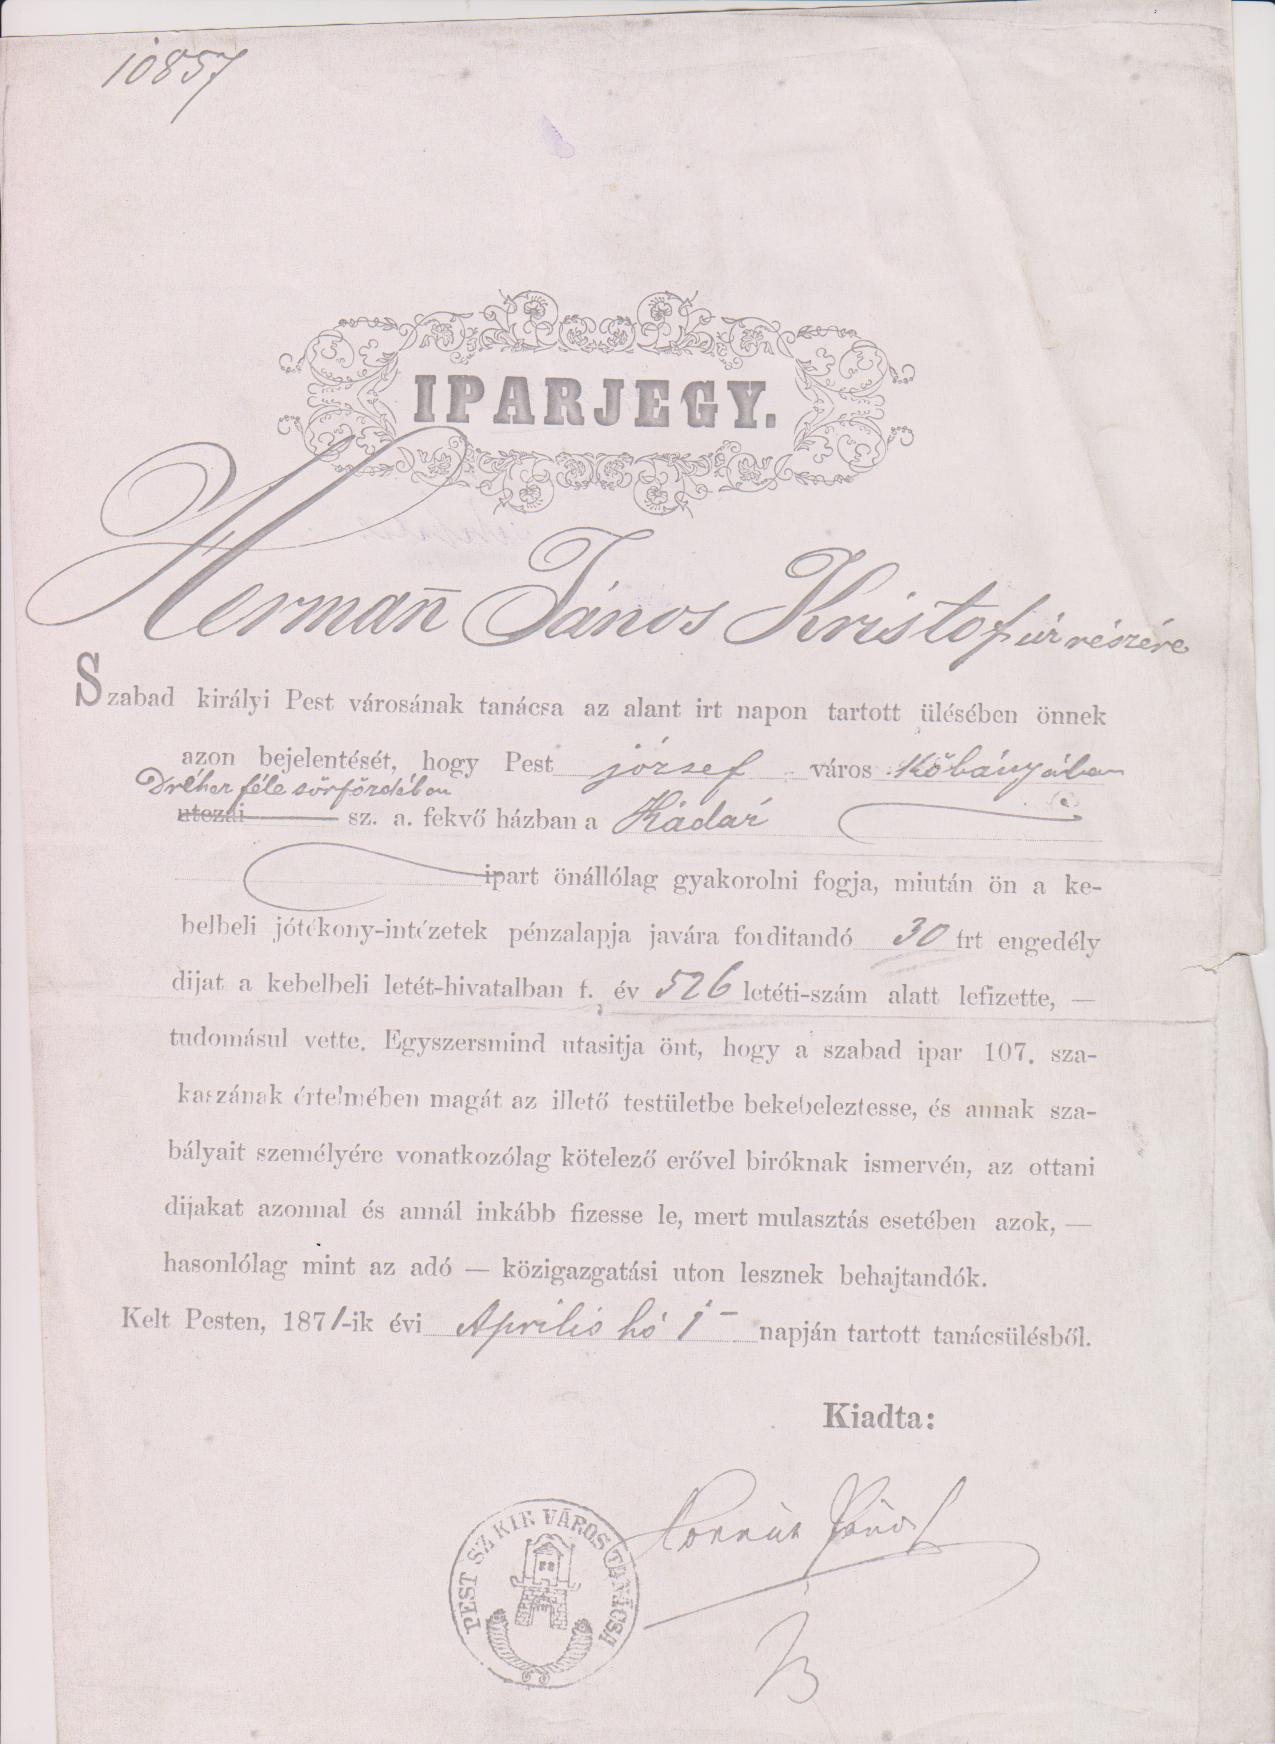 10857
IPARJEGY.
Hermañ János Kristof úr részére
Szabad királyi Pest városának tanácsa az alant irt napon tartott ülésében önnek
azon bejelentését, hogy Pest józsef város Kőbányában
Dréher féle sörfőzdében
utczai sz. a. fekvő házban a Kádár
ipart önállólag gyakorolni fogja, miután ön a ke-
belbeli jótékony-intézetek pénzalapja javára forditandó 30 frt engedély
dijat a kebelbeli letét-hivatalban f. év 526 letéti-szám alatt lefizette, —
tudomásul vette. Egyszersmind utasitja önt, hogy a szabad ipar 107. sza-
kaszának értelmében magát az illető testületbe bekebeleztesse, és annak sza-
bályait személyére vonatkozólag kötelező erővel biróknak ismervén, az ottani
dijakat azonnal és annál inkább fizesse le, mert mulasztás esetében azok, —
hasonlólag mint az adó — közigazgatási uton lesznek behajtandók.
Kelt Pesten, 1871-ik évi Április hó 1 napján tartott tanácsülésből.
Kiadta:
János
PEST SZ KIR VÁROS TANÁCSA